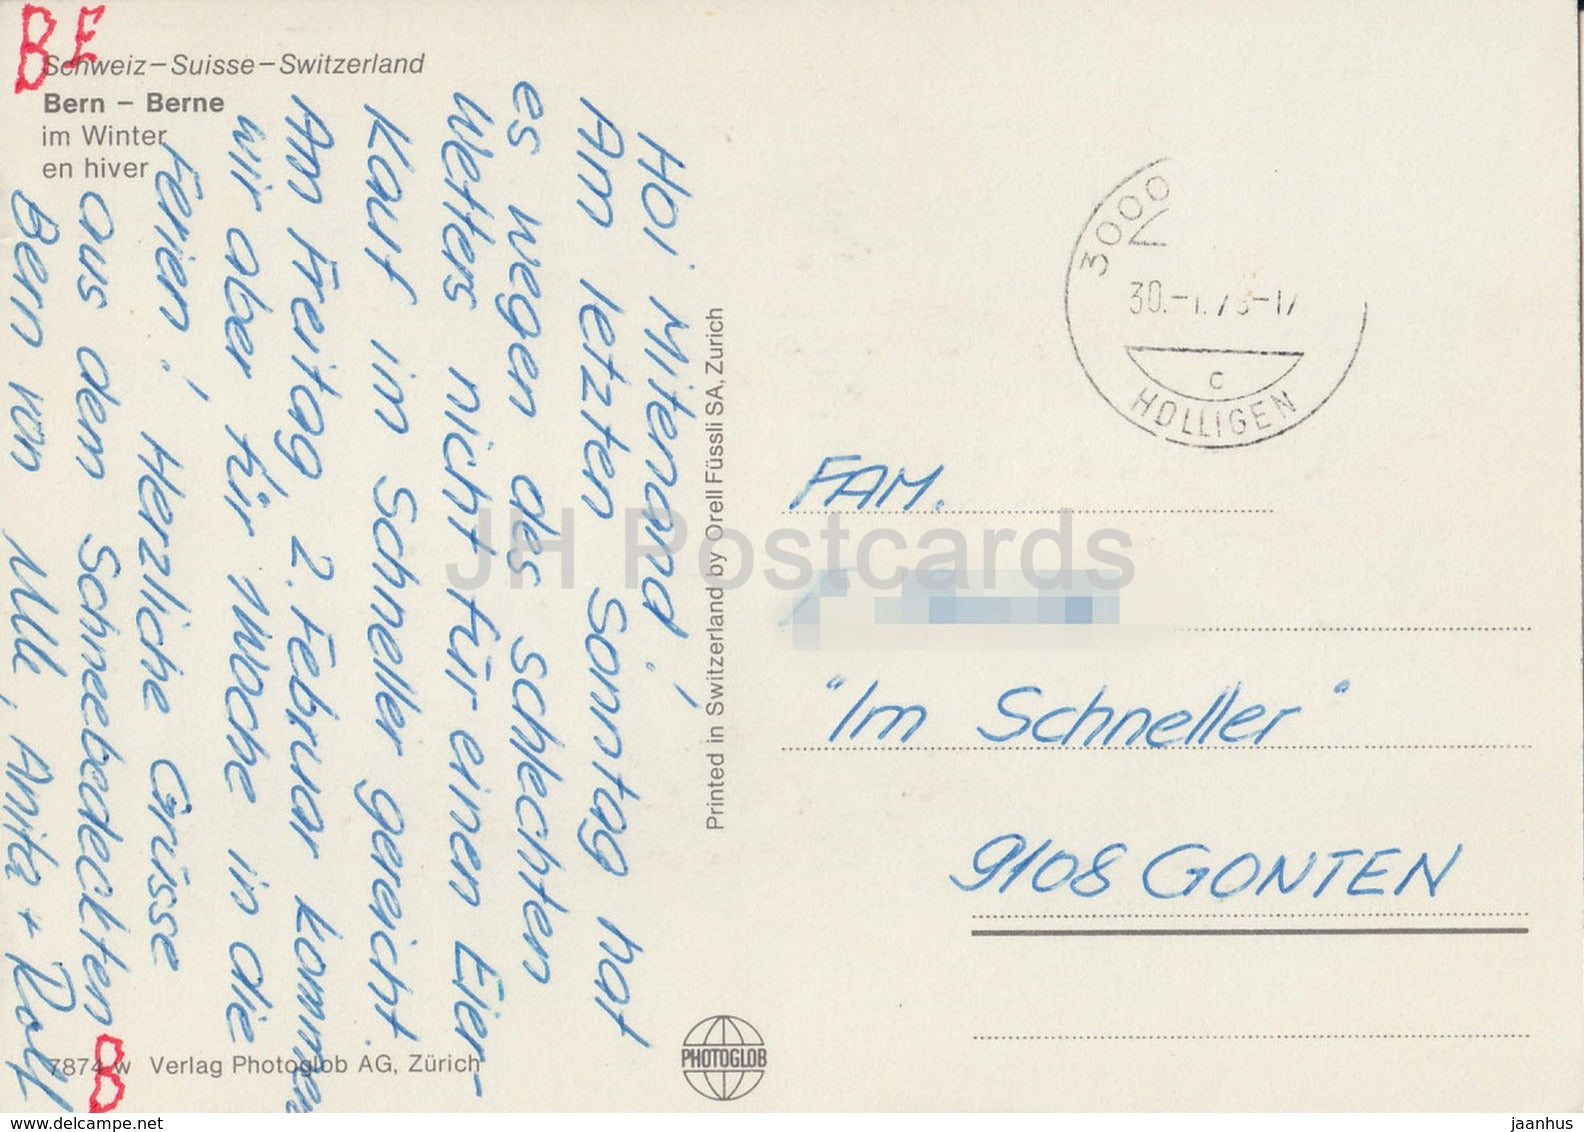 BE
Schweiz–Suisse–Switzerland
Bern – Berne
im Winter
en hiver
Hoi Mitenand!
Am letzten Sonntag hat
es wegen des schlechten
Wetters nicht für einen Eier-
Kauf im Schneller gereicht.
Am Freitag 2. Februar kommen
wir aber für 1 Woche in die
Ferien! Herzliche Grüsse
aus dem Schneebedeckten
Bern von Ueli, Anita + Rolf
B
7874 w Verlag Photoglob AG, Zürich
Printed in Switzerland by Orell Füssli SA, Zurich
PHOTOGLOB
3000
HOLLIGEN
C
FAM.
"Im Schneller"
9108 GONTEN
JH Postcards
www.delcampe.net
jaanhus